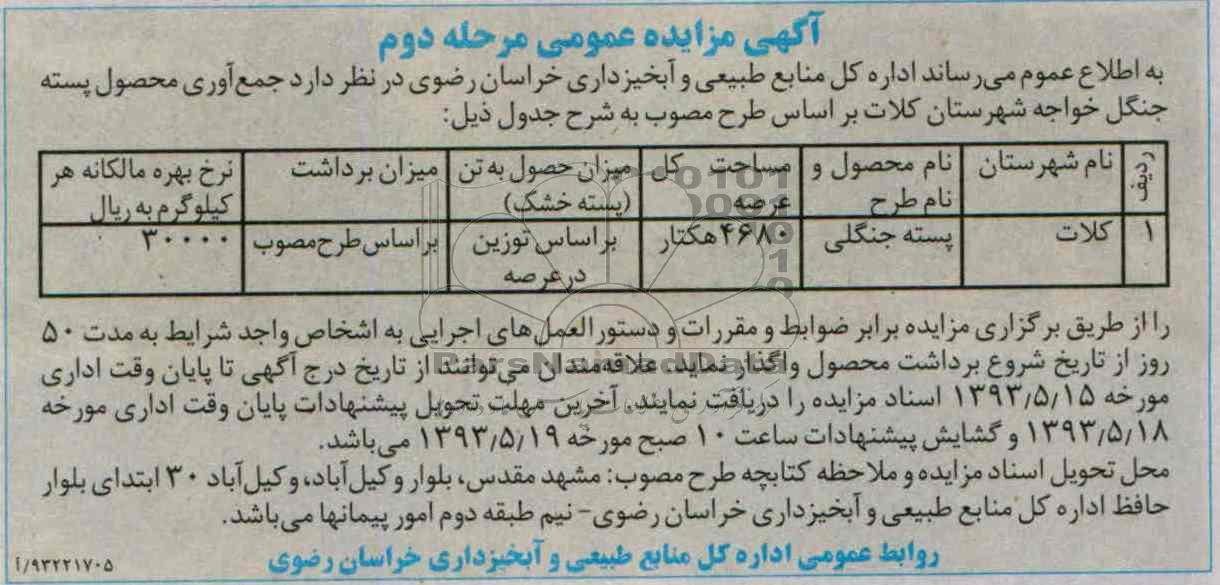 آگهی مزایده عمومی مرحله دوم
به اطلاع عموم می‌رساند اداره کل منابع طبیعی و آبخیزداری خراسان رضوی در نظر دارد جمع‌آوری محصول پسته
جنگل خواجه شهرستان کلات بر اساس طرح مصوب به شرح جدول ذیل:
ردیف | نام شهرستان | نام محصول و نام طرح | مساحت کل عرصه | میزان حصول به تن (پسته خشک) | میزان برداشت | نرخ بهره مالکانه هر کیلوگرم به ریال
۱ | کلات | پسته جنگلی | ۴۶۸۰ هکتار | بر اساس توزین در عرصه | بر اساس طرح مصوب | ۳۰۰۰۰
را از طریق برگزاری مزایده برابر ضوابط و مقررات و دستورالعمل‌های اجرایی به اشخاص واجد شرایط به مدت ۵۰
روز از تاریخ شروع برداشت محصول واگذار نماید. علاقه‌مندان می‌توانند از تاریخ درج آگهی تا پایان وقت اداری
مورخه ۱۳۹۳/۵/۱۵ اسناد مزایده را دریافت نمایند. آخرین مهلت تحویل پیشنهادات پایان وقت اداری مورخه
۱۳۹۳/۵/۱۸ و گشایش پیشنهادات ساعت ۱۰ صبح مورخه ۱۳۹۳/۵/۱۹ می‌باشد.
محل تحویل اسناد مزایده و ملاحظه کتابچه طرح مصوب: مشهد مقدس، بلوار وکیل‌آباد، وکیل‌آباد ۳۰ ابتدای بلوار
حافظ اداره کل منابع طبیعی و آبخیزداری خراسان رضوی- نیم طبقه دوم امور پیمانها می‌باشد.
روابط عمومی اداره کل منابع طبیعی و آبخیزداری خراسان رضوی
۹۳۲۲۱۷۰۵/آ
ParsNamadData